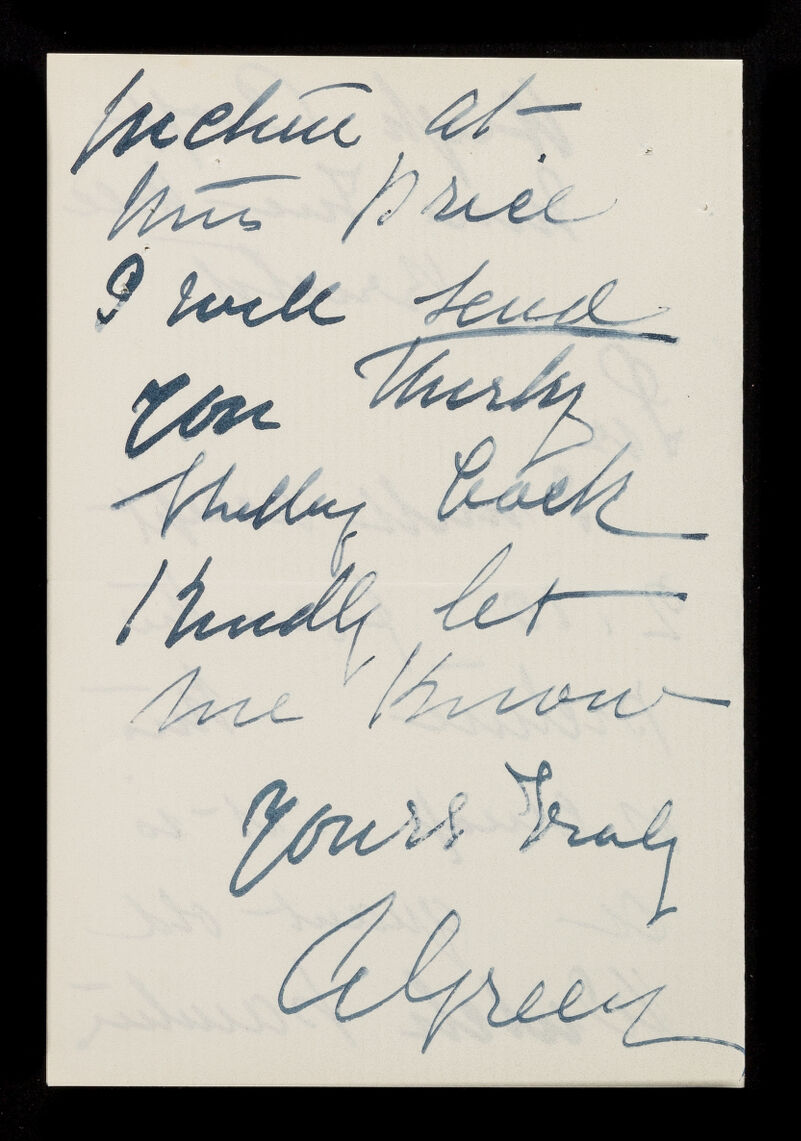 picture at
this price
I will send
you Thirty
Shelby back
Kindly let
me know
yours Truly
Green